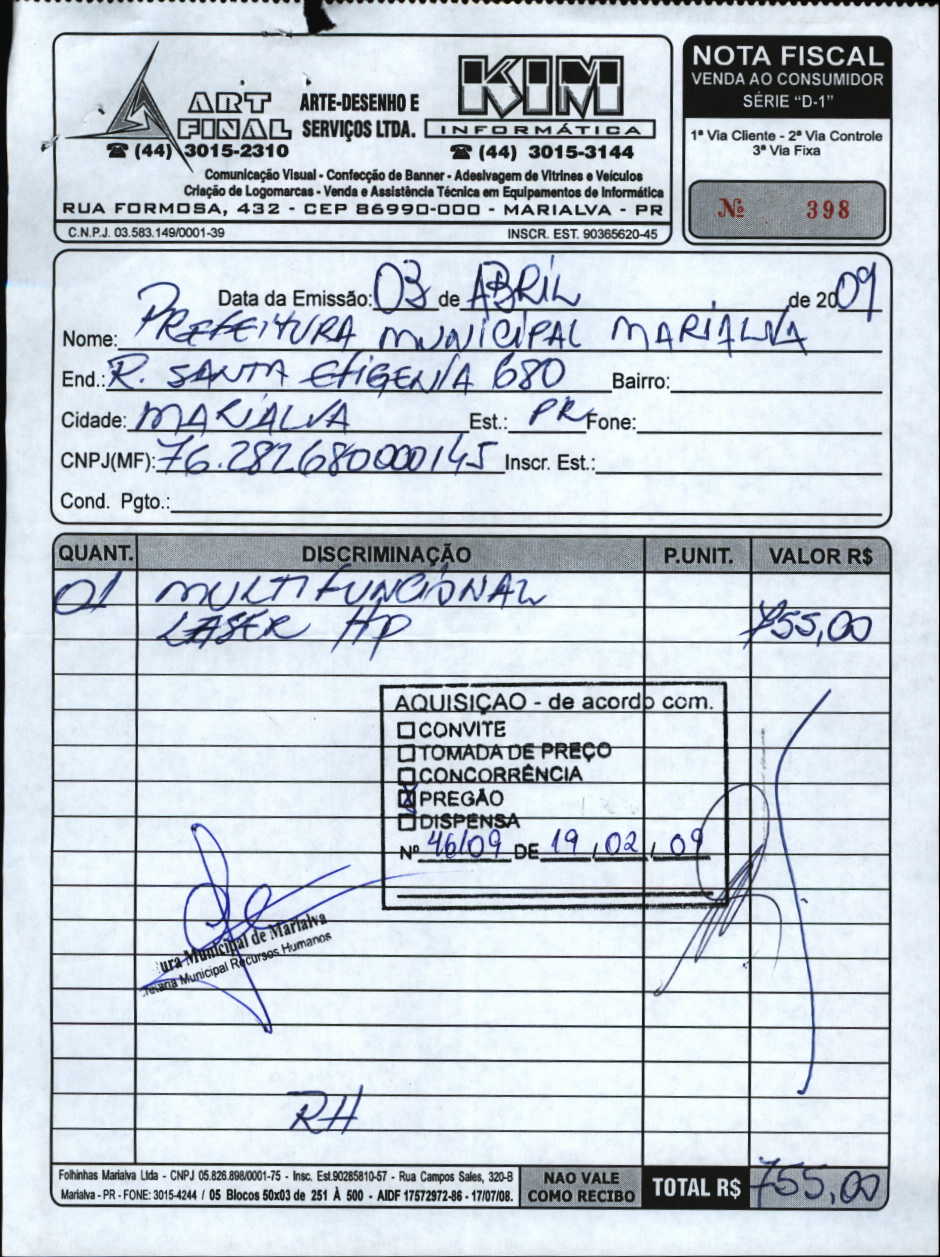 ART FINAL
ARTE-DESENHO E SERVIÇOS LTDA.
☎ (44) 3015-2310
KIM
INFORMÁTICA
☎ (44) 3015-3144
Comunicação Visual - Confecção de Banner - Adesivagem de Vitrines e Veículos
Criação de Logomarcas - Venda e Assistência Técnica em Equipamentos de Informática
RUA FORMOSA, 432 - CEP 86990-000 - MARIALVA - PR
C.N.P.J. 03.583.149/0001-39 INSCR. EST. 90365620-45
NOTA FISCAL
VENDA AO CONSUMIDOR
SÉRIE "D-1"
1ª Via Cliente - 2ª Via Controle
3ª Via Fixa
Nº 398
Data da Emissão: 03 de ABRIL de 2009
Nome: PREFEITURA MUNICIPAL MARIALVA
End.: R. SANTA EFIGENIA 680 Bairro:
Cidade: MARIALVA Est.: PR Fone:
CNPJ(MF): 76.282680000145 Inscr. Est.:
Cond. Pgto.:
QUANT. DISCRIMINAÇÃO P.UNIT. VALOR R$
01 MULTIFUNCIONAL
LASER HP 755,00
AQUISIÇAO - de acordo com.
☐ CONVITE
☐ TOMADA DE PREÇO
☐ CONCORRÊNCIA
☒ PREGÃO
☐ DISPENSA
Nº 46/09 DE 19 / 02 / 09
ura Municipal de Marialva
retaria Municipal Recursos Humanos
RH
Folhinhas Marialva Ltda - CNPJ 05.826.898/0001-75 - Insc. Est.90285810-57 - Rua Campos Sales, 320-B
Marialva - PR - FONE: 3015-4244 / 05 Blocos 50x03 de 251 À 500 - AIDF 17572972-86 - 17/07/08.
NAO VALE
COMO RECIBO
TOTAL R$ 755,00